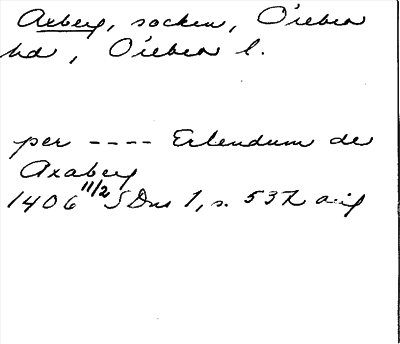 Axberg, socken, Örebro
hd, Örebro l.
per ---- Erlendum de
Axaberg
1406 11/2 SDns 1, s. 537 orig